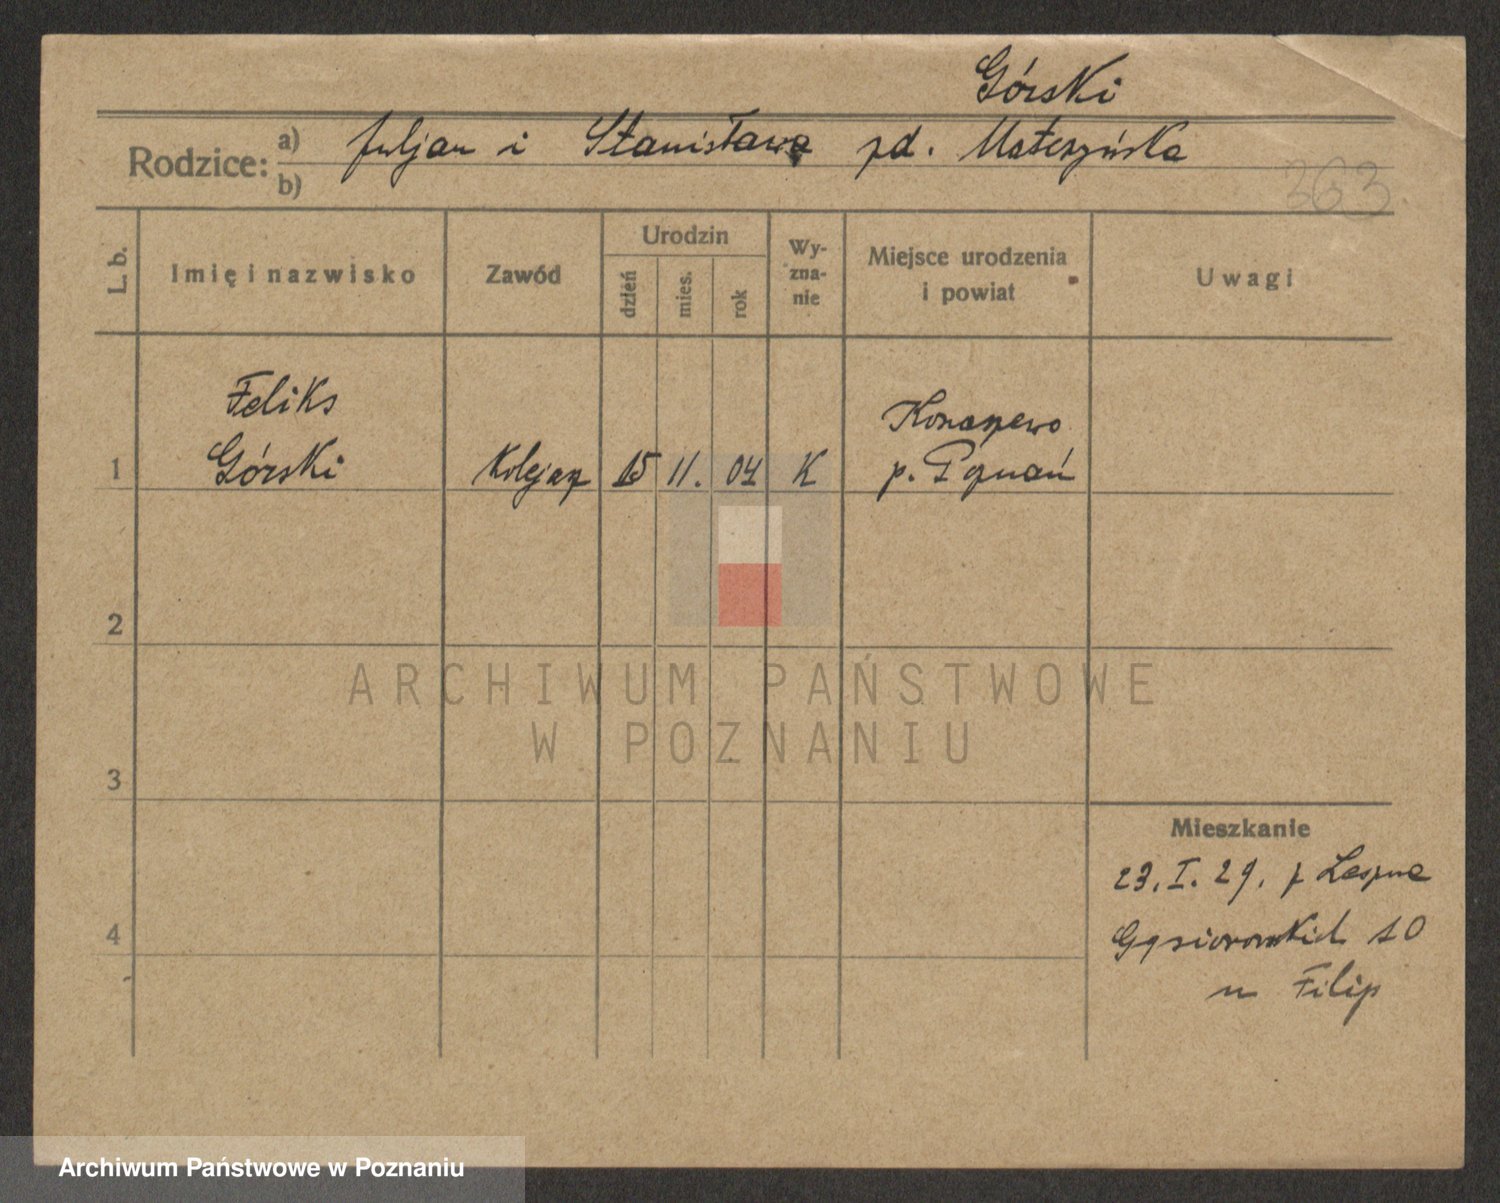 Górski
Rodzice: a) Juljan i Stanisława zd. Matczyńska
b)
363
L. b. Imię i nazwisko Zawód Urodzin dzień mies. rok Wy-zna-nie Miejsce urodzenia i powiat Uwagi
Feliks
1 Górski Kolejarz 15 11. 04 K Konarzewo
p. Poznań
2
ARCHIWUM PAŃSTWOWE
W POZNANIU
3
Mieszkanie
23. I. 29. z
4 Gąsiorowskich 10
u Filip
Archiwum Państwowe w Poznaniu